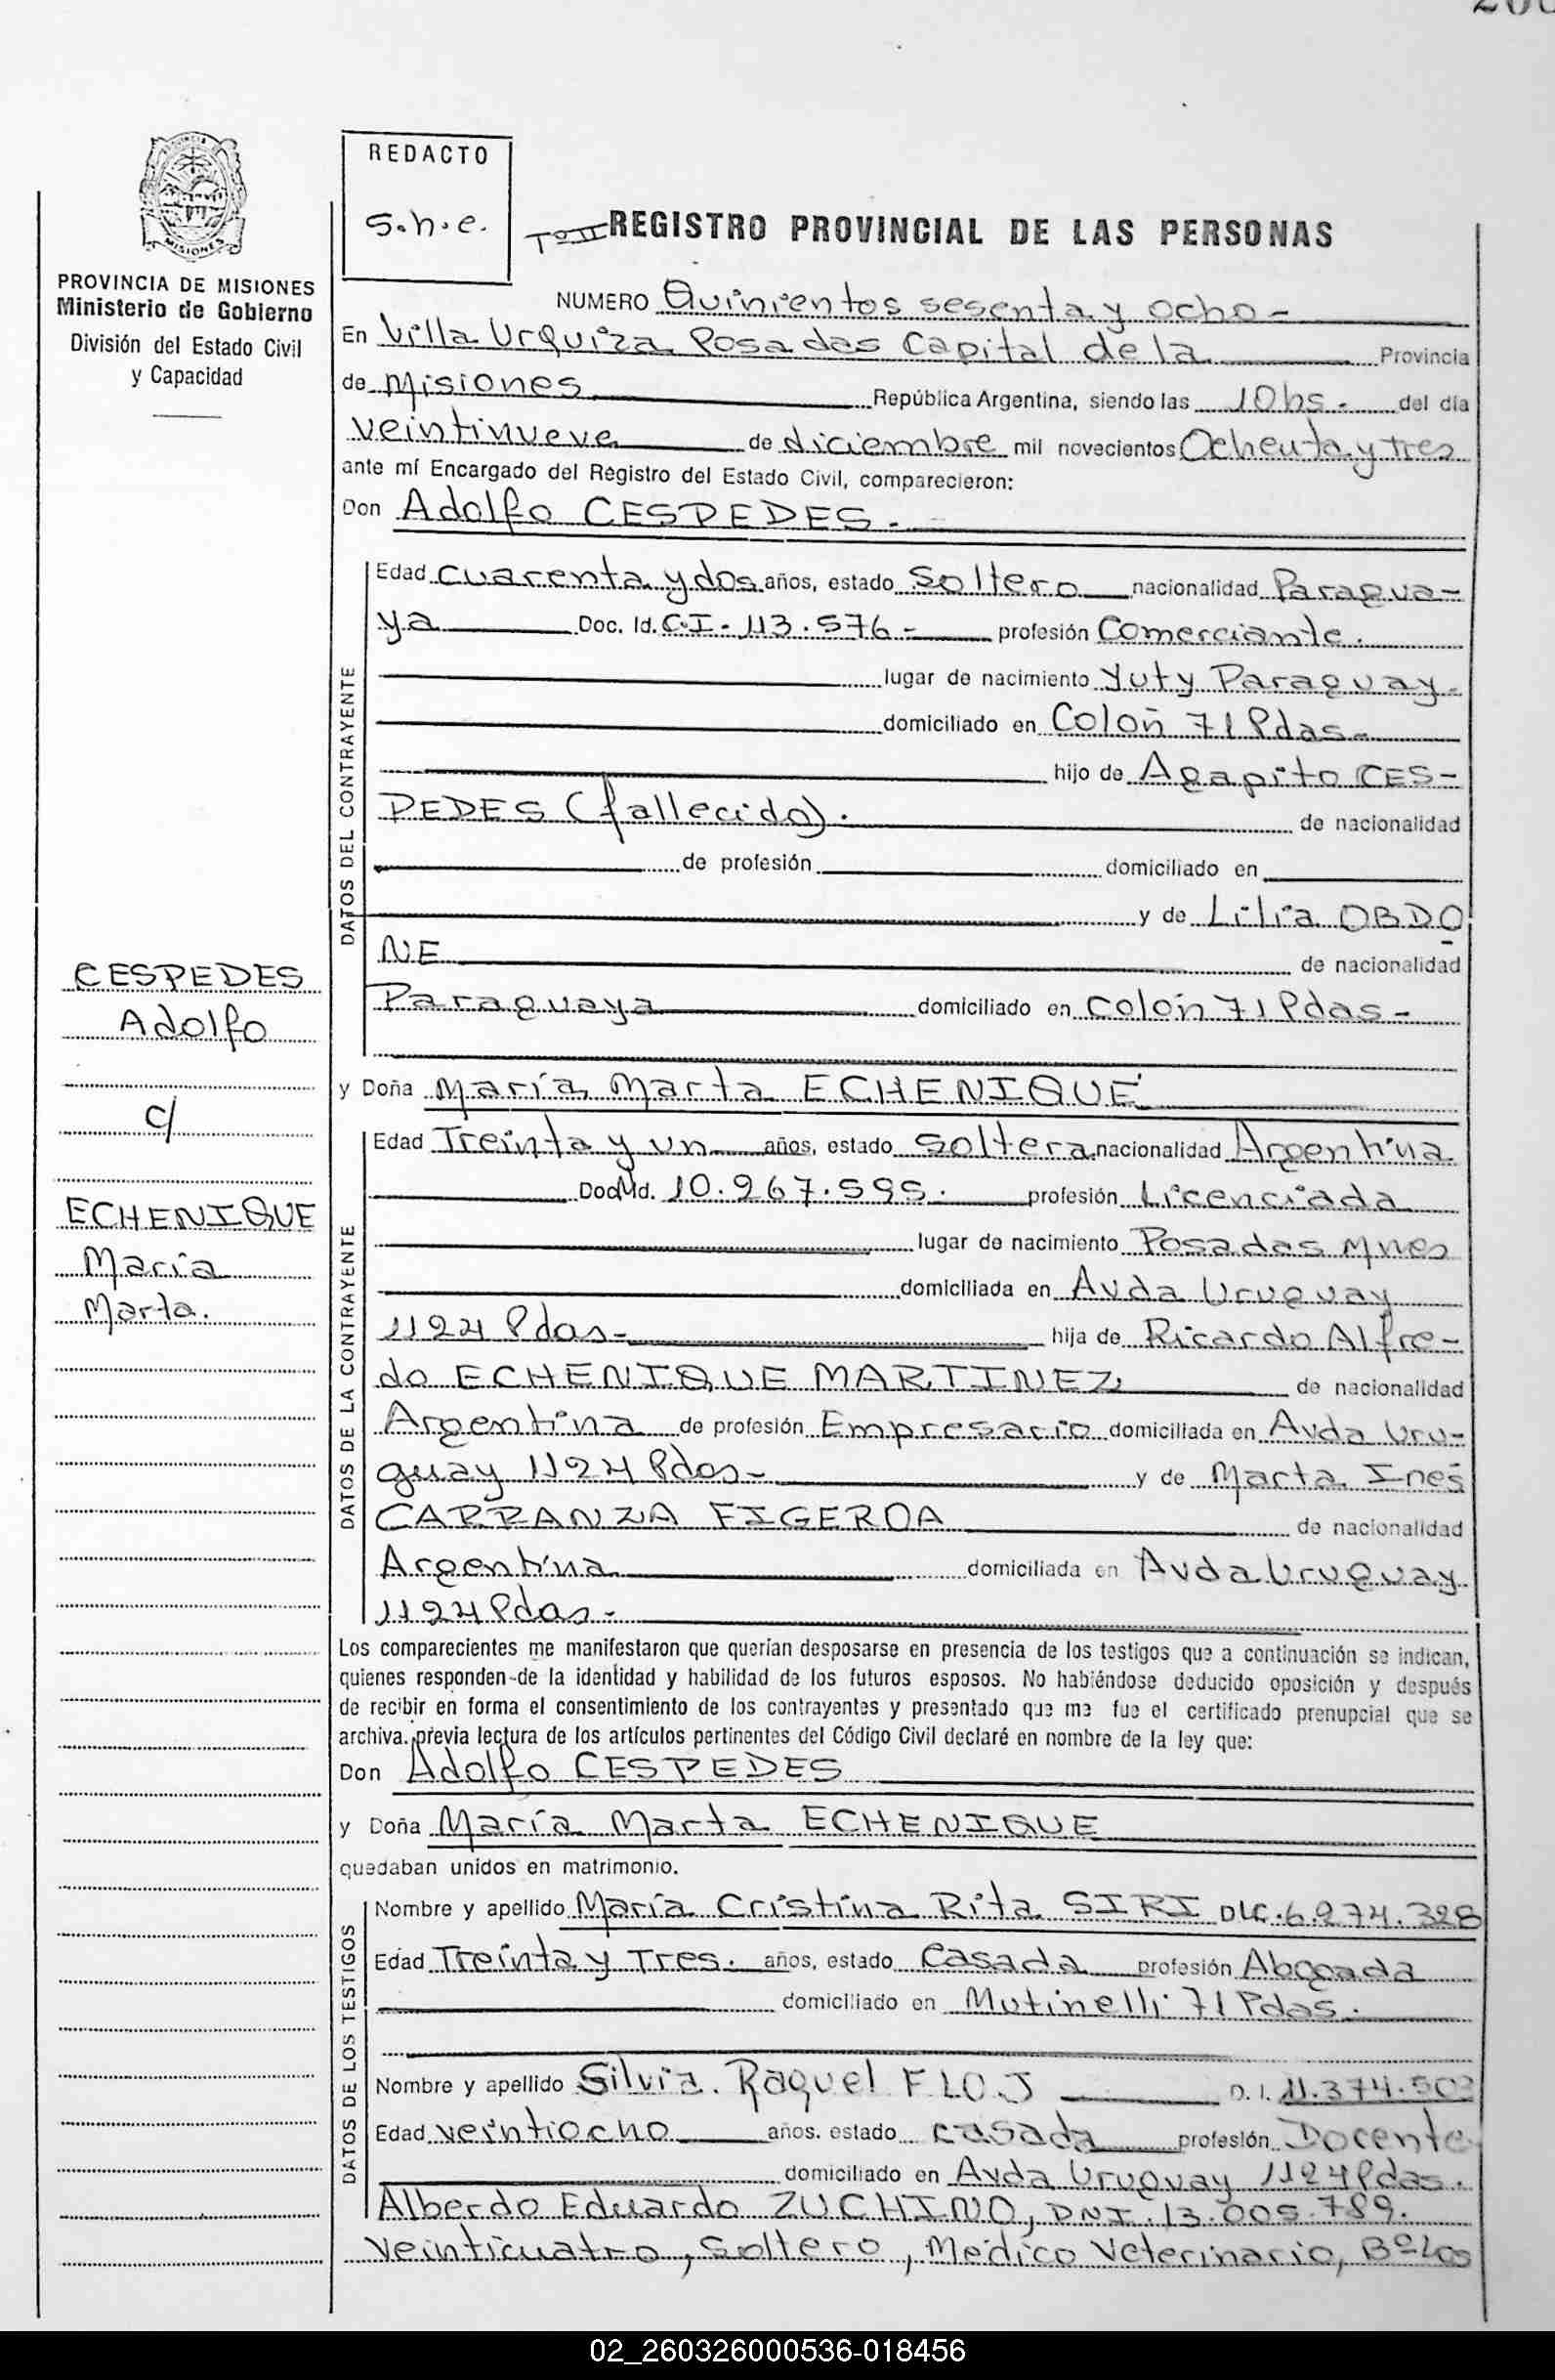 REDACTO
S.h.e.
PROVINCIA DE MISIONES
Ministerio de Gobierno
División del Estado Civil
y Capacidad
Tº II REGISTRO PROVINCIAL DE LAS PERSONAS
NUMERO Quinientos sesenta y ocho -
En Villa Urquiza Posadas Capital de la Provincia
de Misiones República Argentina, siendo las 10hs - del día
veintinueve de diciembre mil novecientos Ochenta y tres
ante mí Encargado del Registro del Estado Civil, comparecieron:
Don Adolfo CESPEDES.
DATOS DEL CONTRAYENTE
Edad cuarenta y dos años, estado Soltero nacionalidad Paragua-
ya Doc. Id. C.I - 113.576 - profesión Comerciante.
lugar de nacimiento Yuty Paraguay.
domiciliado en Colón 71 Pdas -
hijo de Agapito CES-
PEDES (fallecido). de nacionalidad
de profesión domiciliado en
y de Lilia OBDO
NE de nacionalidad
Paraguaya domiciliado en Colón 71 Pdas -
CESPEDES
Adolfo
c/
ECHENIQUE
María
Marta.
y Doña María Marta ECHENIQUE
DATOS DE LA CONTRAYENTE
Edad Treinta y un años, estado Soltera nacionalidad Argentina
Doc. Id. 10.967.595. profesión Licenciada
lugar de nacimiento Posadas Mnes
domiciliada en Avda Uruguay
1124 Pdas - hija de Ricardo Alfre-
do ECHENIQUE MARTINEZ de nacionalidad
Argentina de profesión Empresario domiciliada en Avda Uru-
guay 1124 Pdas - y de Marta Inés
CARRANZA FIGEROA de nacionalidad
Argentina domiciliada en Avda Uruguay
1124 Pdas -
Los comparecientes me manifestaron que querían desposarse en presencia de los testigos que a continuación se indican,
quienes responden de la identidad y habilidad de los futuros esposos. No habiéndose deducido oposición y después
de recibir en forma el consentimiento de los contrayentes y presentado que me fue el certificado prenupcial que se
archiva. previa lectura de los artículos pertinentes del Código Civil declaré en nombre de la ley que:
Don Adolfo CESPEDES
y Doña María Marta ECHENIQUE
quedaban unidos en matrimonio.
DATOS DE LOS TESTIGOS
Nombre y apellido María Cristina Rita SIRI 6.274.328
Edad Treinta y Tres. años, estado Casada profesión Abogada
domiciliado en Mutinelli 71 Pdas.
Nombre y apellido Silvia Raquel D. I. 11.374.502
Edad veintiocho años. estado casada profesión Docente
domiciliado en Avda Uruguay 1124 Pdas.
Alberdo Eduardo ZUCHINO, DNI. 13.005.789.
veinticuatro, Soltero, Medico Veterinario, Bº Los
02_260326000536-018456